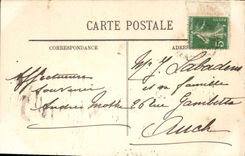 CARTE POSTALE
CORRESPONDANCE
Affectueux
Souvenir
André
5
Mr J. Labadens
et sa famille
26 rue Gambetta
Auch